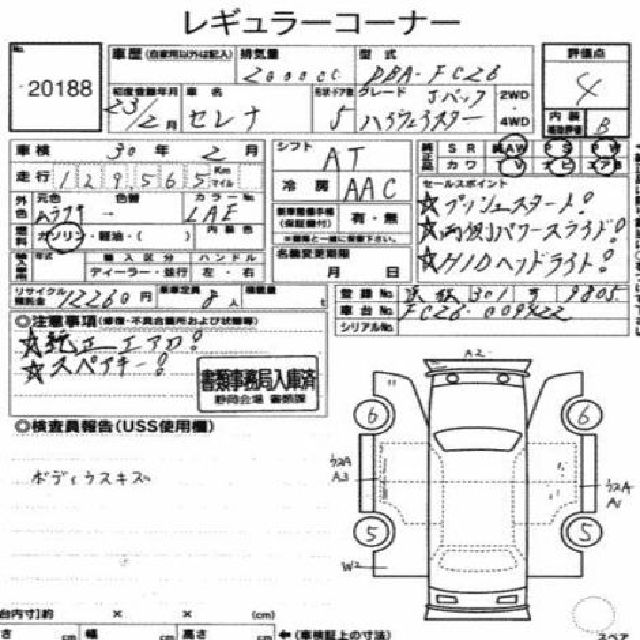 レギュラーコーナー
No. 20188
車歴 (自家用以外は記入) 排気量 型式 評価点
2000cc DBA-FC26 4
初度登録年月 車名 形状・ドア数 グレード Jパック 2WD 内装
23/2月 セレナ 5 ハイウェイスター ・4WD 補助評価 B
車検 30年 2月 シフト AT 純正品 SR AW PS PW
走行 129,565 Km マイル 冷房 AAC カワ TV ナビ エアB
外色 元色 色替 カラーNo. セールスポイント
LAE ☆プッシュスタート!
燃料 ガソリン・軽油・( ) 内装色 有・無 ☆両側パワースライド!
輸入車用 年式 輸入区分 ハンドル 名義変更期限 ☆HIDヘッドライト!
ディーラー・並行 左・右 月 日
リサイクル預託金 12260円 乗車定員 8人 積載量 t 登録No. 301 9805
車台No. FC26-009422
シリアルNo.
◎注意事項 (修復・不具合箇所および状態等)
☆純正エアロ!
☆スペアキー!
書類事務局入庫済
静岡会場 書類課
◎検査員報告(USS使用欄)
ボディウスキズ
A2
6 6
ウスA A1
ウスA A1
5 5
W2
台内寸]約 × × (cm)
さ cm 幅 cm 高さ cm ←(車検証上の寸法)